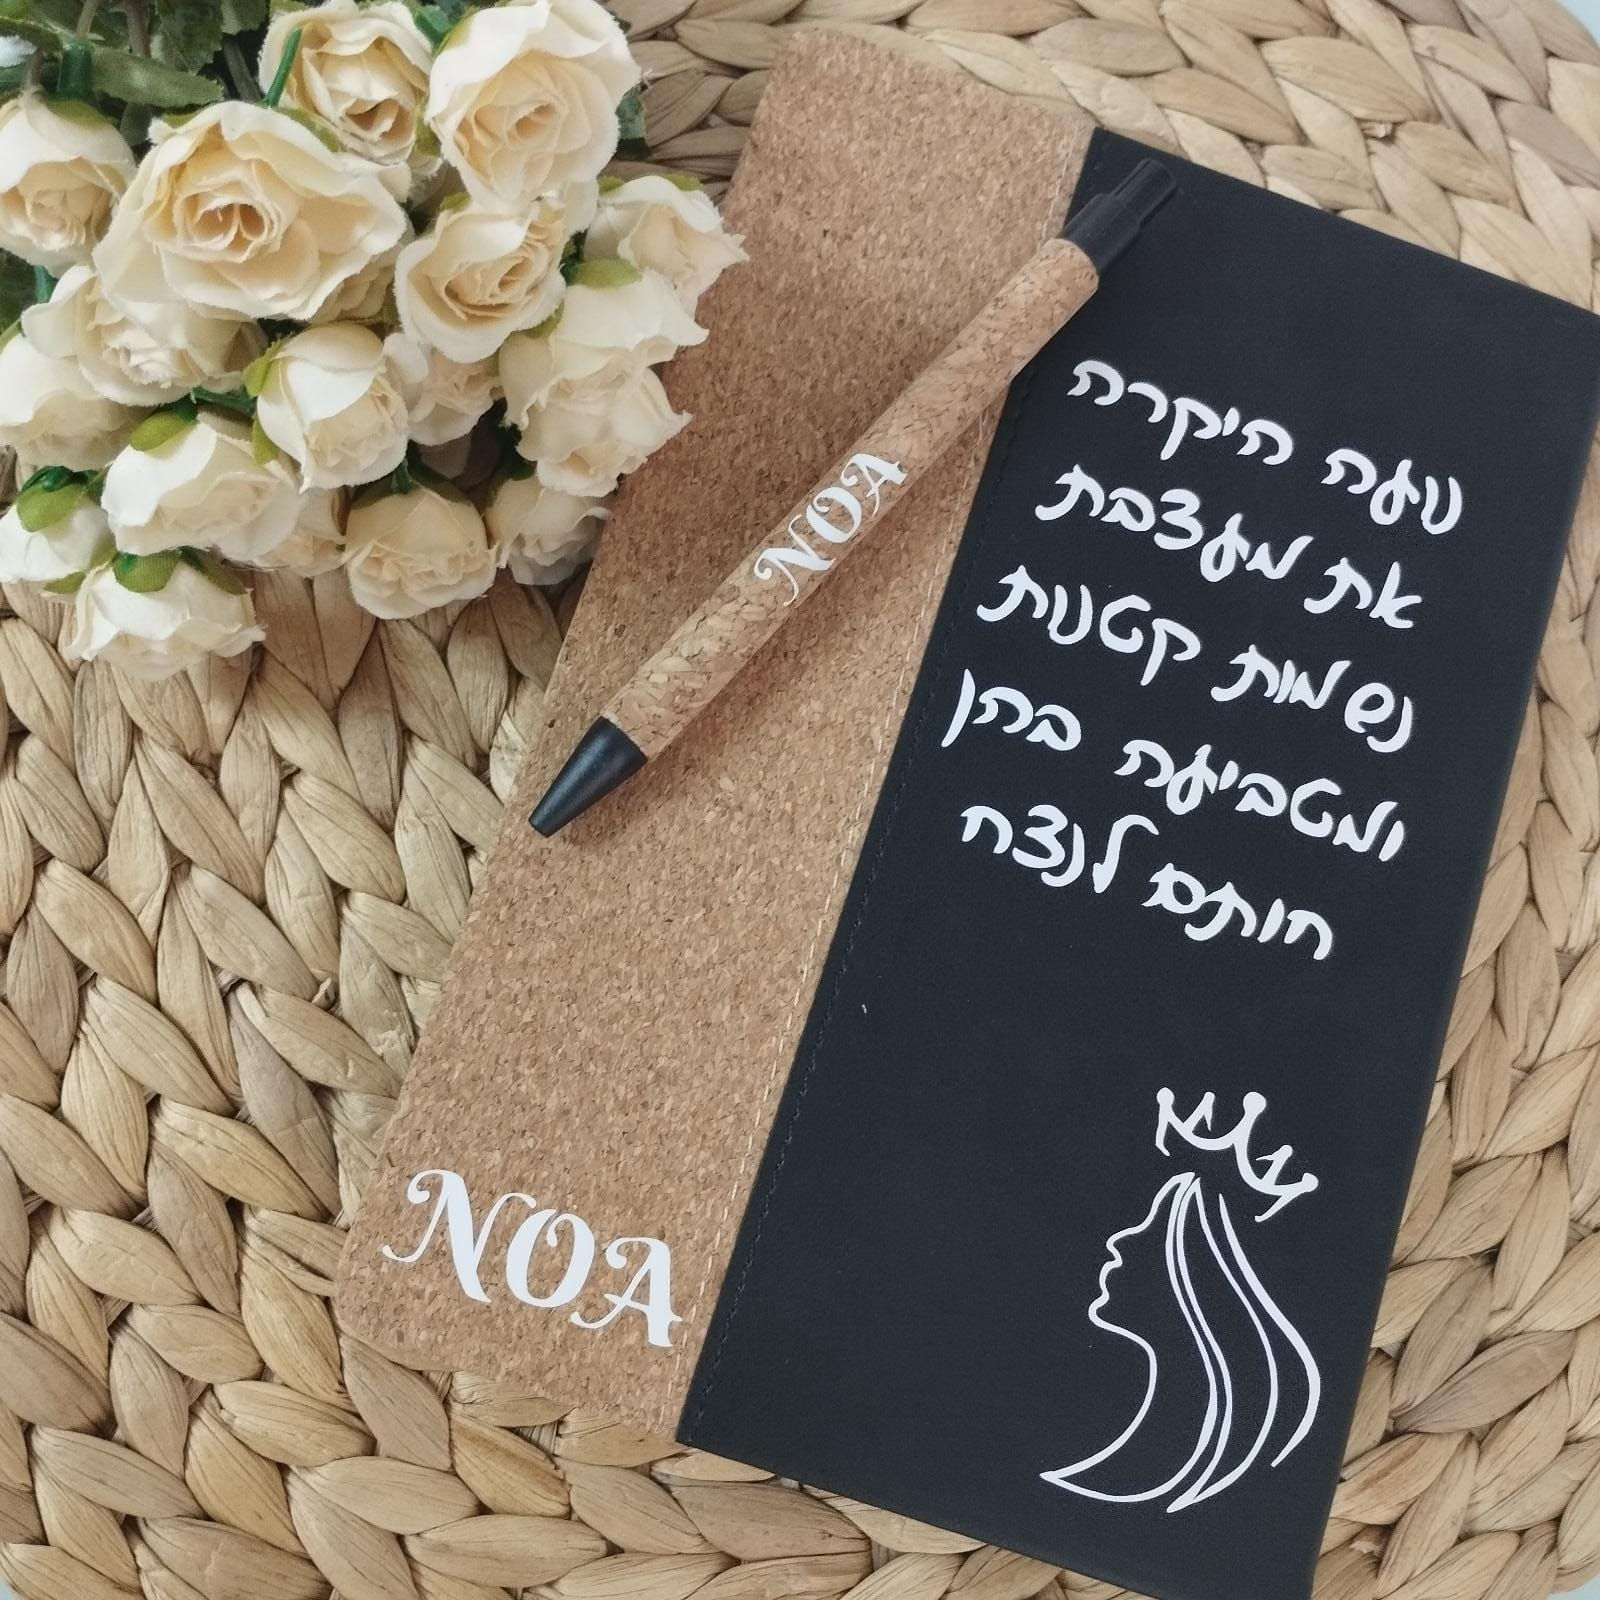 נועה היקרה
את מעצבת
נשמות קטנות
ומטביעה בהן
חותם לנצח
NOA
NOA